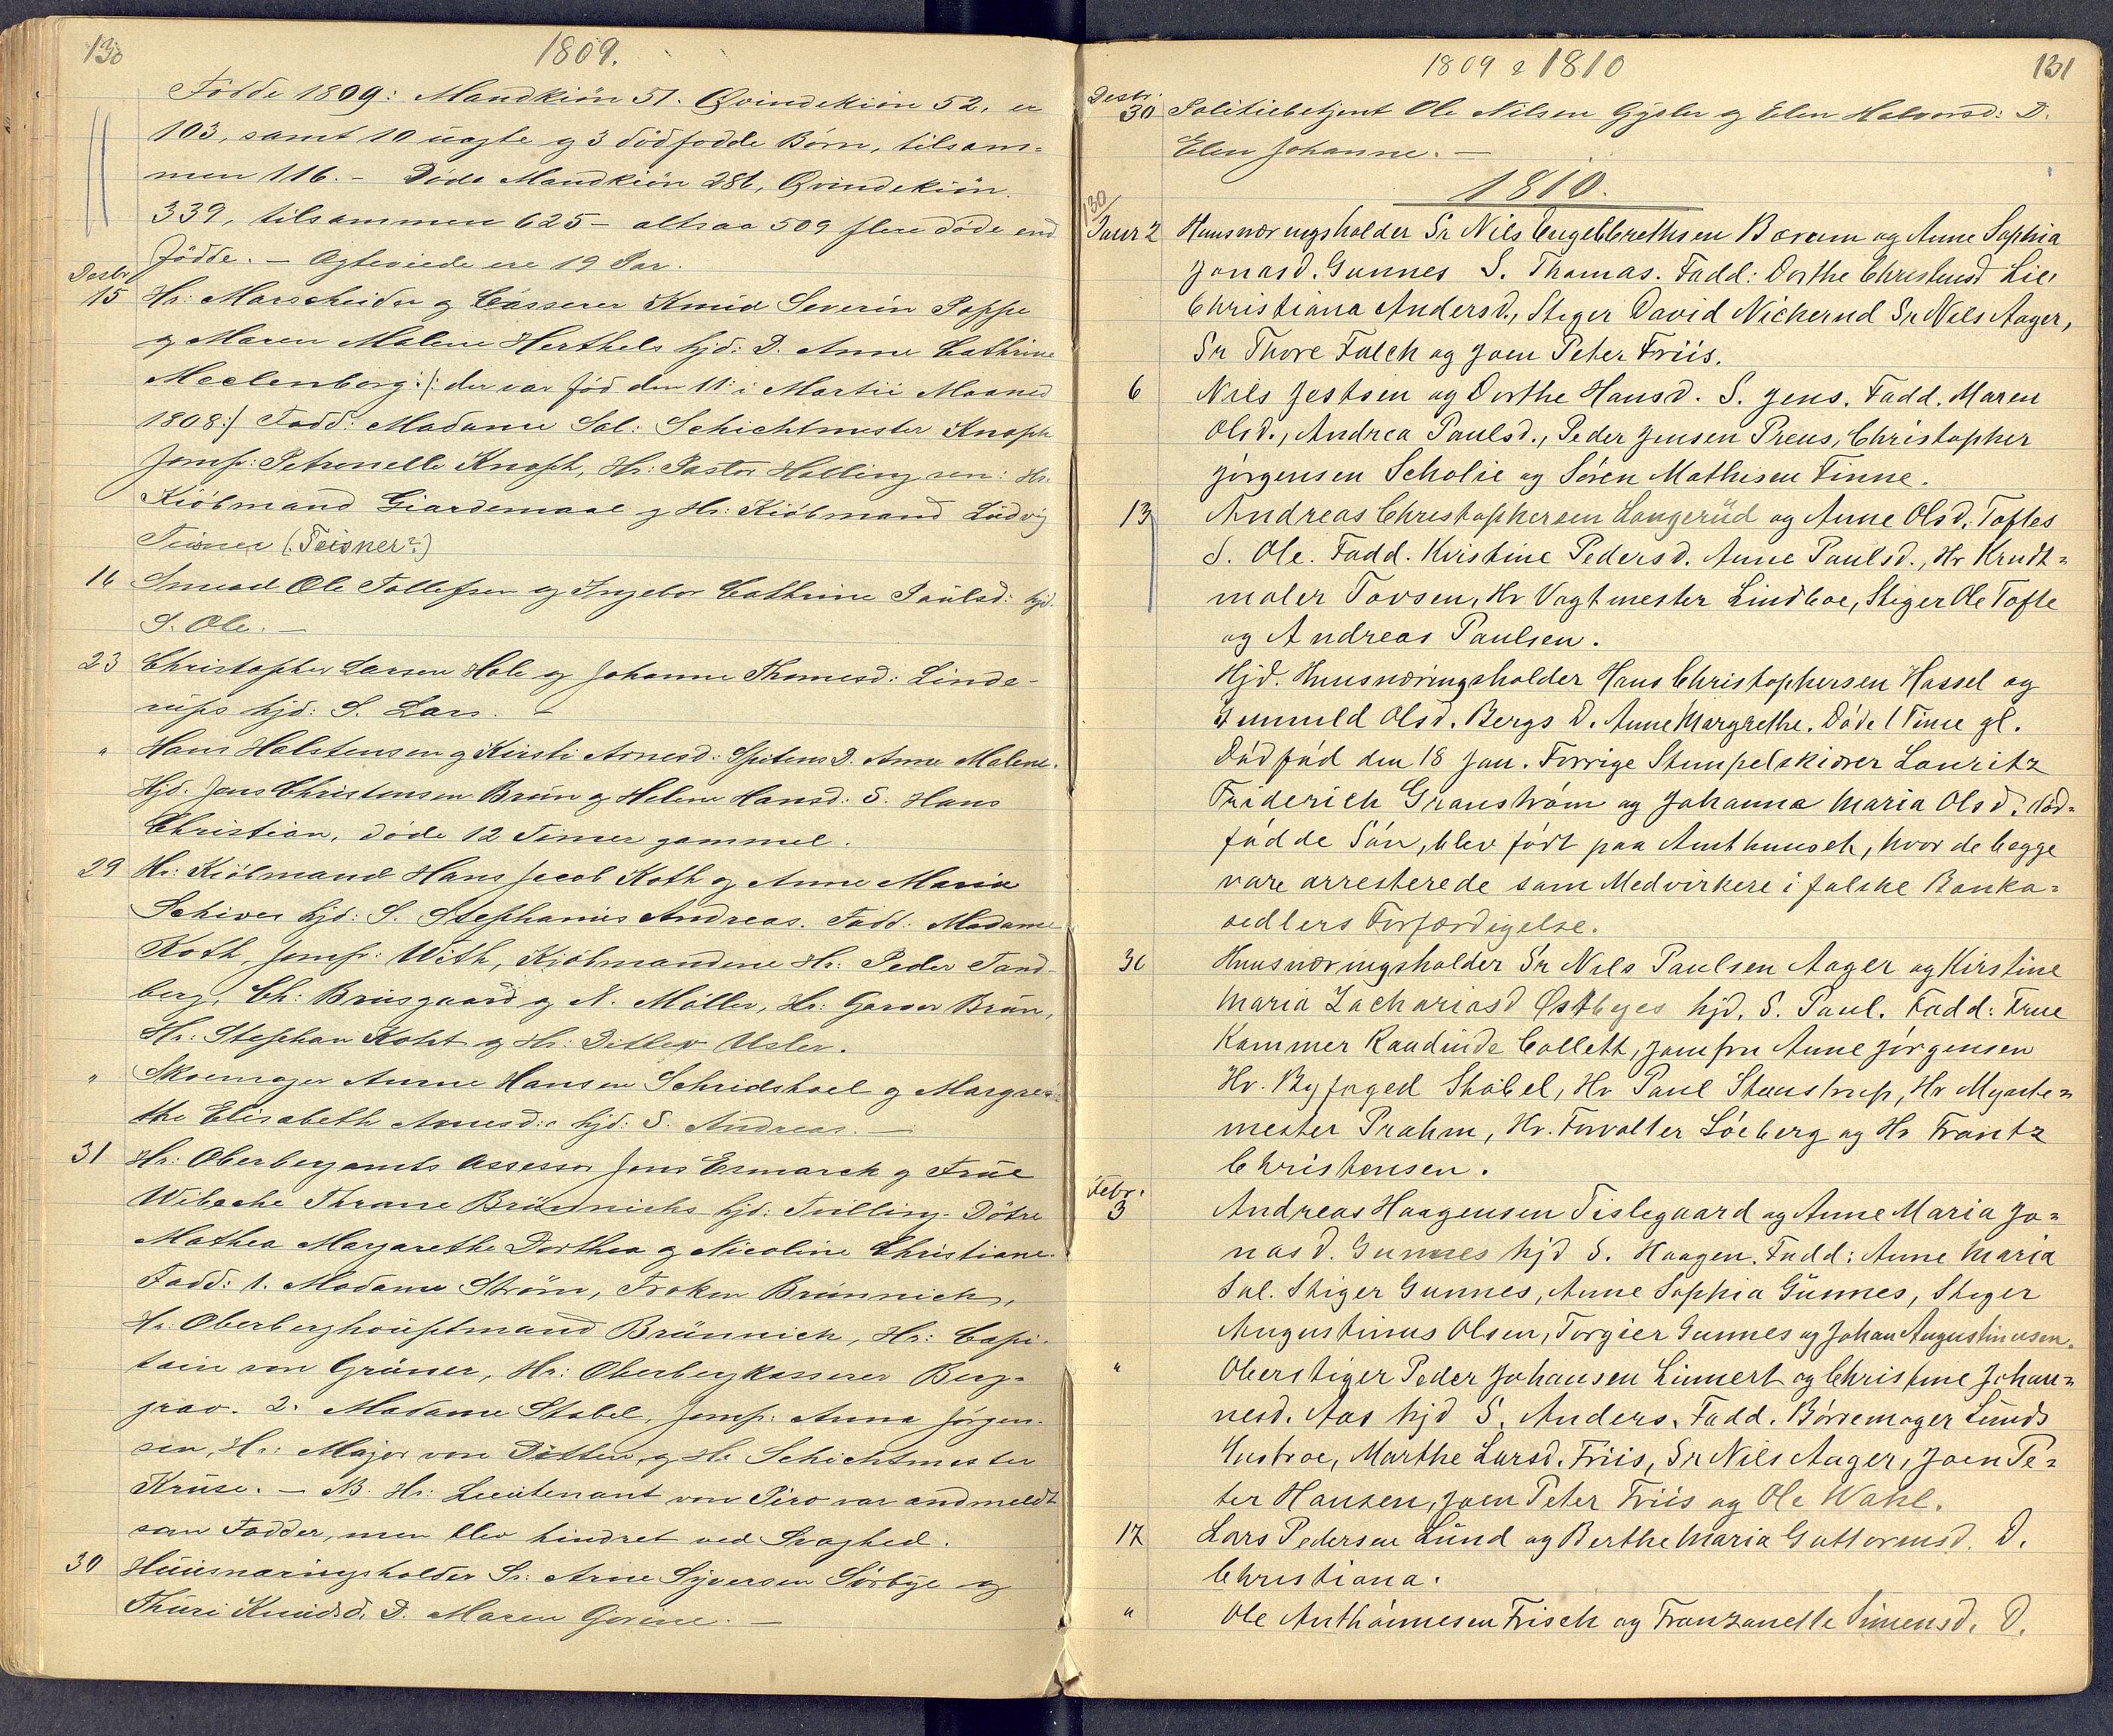 130
1809.
Fødde 1809: Mandkiön 51. Qvindekiön 52, er
103, samt 10 uægte og 3 dödfödde Börn, tilsam=
men 116. – Döde Mandkiön 286, Qvindekiön
339, tilsammen 625 – altsaa 509 flere döde end
födte. – Ægteviede ere 19 Par.
Desbr.
15 Hr: Marscheider og Casserer Knud Severin Poppe
og Maren Malene Herthels hjd: D. Anne Cathrine
Meclenborg :/: der var fød den 11: i Martii Maaned
1808:/ Fadd: Madame Sal: Schichtmester Knoph
Jomfr: Petronelle Knoph, Hr: Pastor Hölling sen: Hr.
Kiöbmand Giardemaal og Hr: Kiöbmand Ludvig
(Teisner?)
16 Smed Ole Tollefsen og Ingebor Cathrine Paulsd: hjd.
S. Ole. –
23 Christopher Larsen Hole og Johanne Thomesd: Linde-
rups hjd: S. Lars. –
" Hans Halstensen og Kirsti Arnesd: Spitens D. Anne Malene.
Hjd. Jens Christensen Brun og Helene Hansd: S. Hans
Christian, döde 12 Timer gammel.
29 Hr: Kiöbmand Hans Jacob Koth og Anne Maria
Schives hjd: S. Stephanius Andreas. Fadd: Madame
Koth, Jomfr: With, Kjöbmændene Hr: Peder Tand-
berg, Ch: Bruusgaard og N. Möller, Hr: Garver Brun,
Hr: Stephan Koht og Hr: Ditlev Usler.
" Skoemager Anne Hansen Schridshoel og Margre=
the Elisabeth Arnesd: hjd: S. Andreas. –
31 Hr: Oberbergamts Assessor Jens Esmarch og Frue
Wibeche Thrane Brünnichs hjd: Tvilling-Dötre
Mathea Margarethe Dorthea og Nicoline Christiane.
Fadd: 1. Madame Ström, Frøken Brünnich,
Hr. Oberberghouptmand Brünnich, Hr: Capi-
tain von Grüner, Hr: Oberbergkasserer Berg-
grav. 2. Madame Stabel, Jomfr: Anna Jörgen-
sen, Hr: Major von Ditten og Hr: Schichtmester
Kruse. – NB. Hr: Lieutenant von Piro var andmeldt
som Fadder, men blev hindret ved Svaghed.
30 Huusnæringsholder Sr: Arne Syversen Sörbye og
Thuri Knudsd. D. Maren Gorine. –
1809 & 1810
131
Desbr.
30 Politiebetjent Ole Nilsen Gysler og Elen Halvorsd: D.
Elen Johanne. –
1810.
130
Janr 2 Huusnæringsholder Sr Nils Engelbrethsen Bærum og Anne Sophia
Jonasd. Gunnes S. Thomas. Fadd: Dorthe Christensd Lie,
Christiana Andersd., Stiger David Nickerud Sr Nils Aager,
Sr Thore Falch og Joen Peter Friis.
6 Nils Jestsen og Dorthe Hansd. S. Jens. Fadd. Maren
Olsd., Andrea Paulsd., Peder Jensen Preus, Christopher
Jørgensen Scholie og Sören Mathisen Finne.
13 Andreas Christophersen Langerüd og Anne Olsd. Toftes
S. Ole. Fadd. Kirstine Pedersd. Anne Paulsd., Hr Krudt=
maler Tovsen, Hr Vagtmester Lindboe, Stiger Ole Tofte
og Andreas Paulsen.
Hjd. Huusnæringsholder Hans Christophersen Hassel og
Gunnild Olsd. Bergs D. Anne Margrethe. Døde 1 Time gl.
Dødfød den 18 Jan. Forrige Stempelskiærer Lauritz
Friderich Granstrøm og Johanna Maria Olsd. død=
födde Søn, blev født paa Amthuuset, hvor de begge
vare arresterede som Medvirkere i falske Banko=
sedlers Forfærdigelse.
30 Huusnæringsholder Sr Nils Paulsen Aager og Kirstine
Maria Zachariasd Østbyes hjd. S. Paul. Fadd: Frue
Kammer Raadinde Collett, Jomfru Anne Jörgensen
Hr. Byfoged Stabel, Hr Paul Steenstrup, Hr Mynte=
mester Prahm, Hr. Forvalter Löeberg og Hr Frantz
Christensen.
Febr.
3 Andreas Haagensen Tislegaard og Anne Maria Jo=
nasd. Gunnes hjd S. Haagen. Fadd: Anne Maria
Sal. Stiger Gunnes, Anne Sophia Gunnes, Stiger
Augustinus Olsen, Torgier Gunnes og Johan Augustinusen.
" Oberstiger Peder Johansen Linnert og Christine Johan=
nesd. Aas hjd S. Anders. Fadd. Børremager Lunds
Hustroe, Marthe Larsd. Friis, Sr Nils Aager, Joen Pe=
ter Hansen, Joen Peter Friis og Ole Wahl.
17 Lars Pedersen Lund og Berthe Maria Guttormsd. D.
Christiana.
" Ole Anthönnesen Frisch og Franzanette Simensd. D.